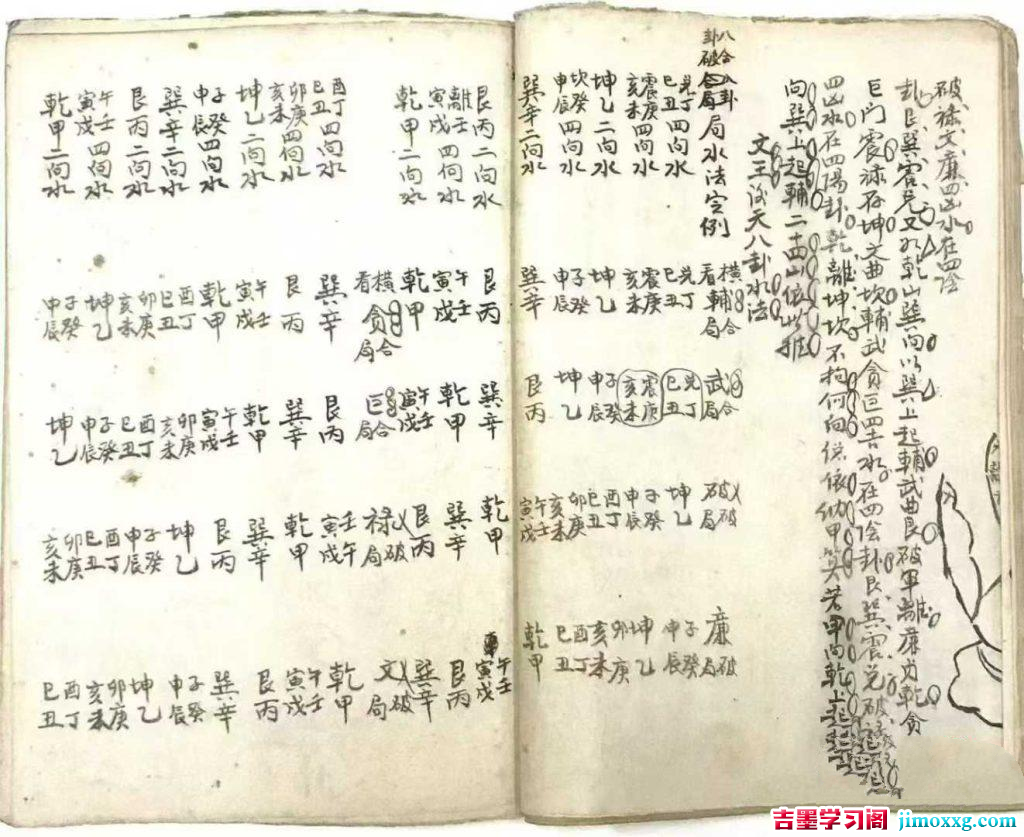 破祿文廉四凶水在四陰
卦艮巽震兌又如乾山巽向以巽上起輔武曲艮破軍離廉貞乾貪
巨門震祿存坤文曲坎輔武貪巨四吉水在四陰卦艮巽震兌破
四凶水在四陽卦乾離坤坎不拘何向俱依納甲算若甲向乾上起
向巽上起輔二十四山依此推
文王後天八卦水法
八合八卦
卦破合局局水法定例
兌丁巳丑四向水
震庚亥未四向水
坤乙二向水
坎癸申辰四向水
巽辛二向水
橫合
看輔局
兌丁巳丑
震庚亥未
坤乙
子癸申辰
巽辛
合
武局
兌丁巳丑
震庚亥未
子癸申辰
坤乙
艮丙
破
破局
坤乙
子癸申辰
酉丁巳丑
卯庚亥未
午壬寅戌
廉破局
子癸申辰
坤乙
卯庚亥未
酉丁巳丑
乾甲
艮丙二向水
離壬寅戌四向水
乾甲二向水
酉丁巳丑四向水
卯庚亥未四向水
坤乙二向水
子癸申辰四向水
巽辛二向水
艮丙二向水
午壬寅戌四向水
乾甲二向水
艮丙
午壬寅戌
乾甲
橫合
看貪局
巽辛
艮丙
午壬寅戌
乾甲
酉丁巳丑
卯庚亥未
坤乙
子癸申辰
巽辛
乾甲
午壬寅戌
合
巨局
艮丙
巽辛
乾甲
午壬寅戌
卯庚亥未
酉丁巳丑
子癸申辰
坤乙
乾甲
巽辛
艮丙
破
祿局
壬午寅戌
乾甲
巽辛
艮丙
坤乙
子癸申辰
酉丁巳丑
卯庚亥未
午壬寅戌
艮丙
巽辛
破
文局
乾甲
午壬寅戌
艮丙
巽辛
子癸申辰
坤乙
卯庚亥未
酉丁巳丑
吉墨学习阁 jimoxxg.com